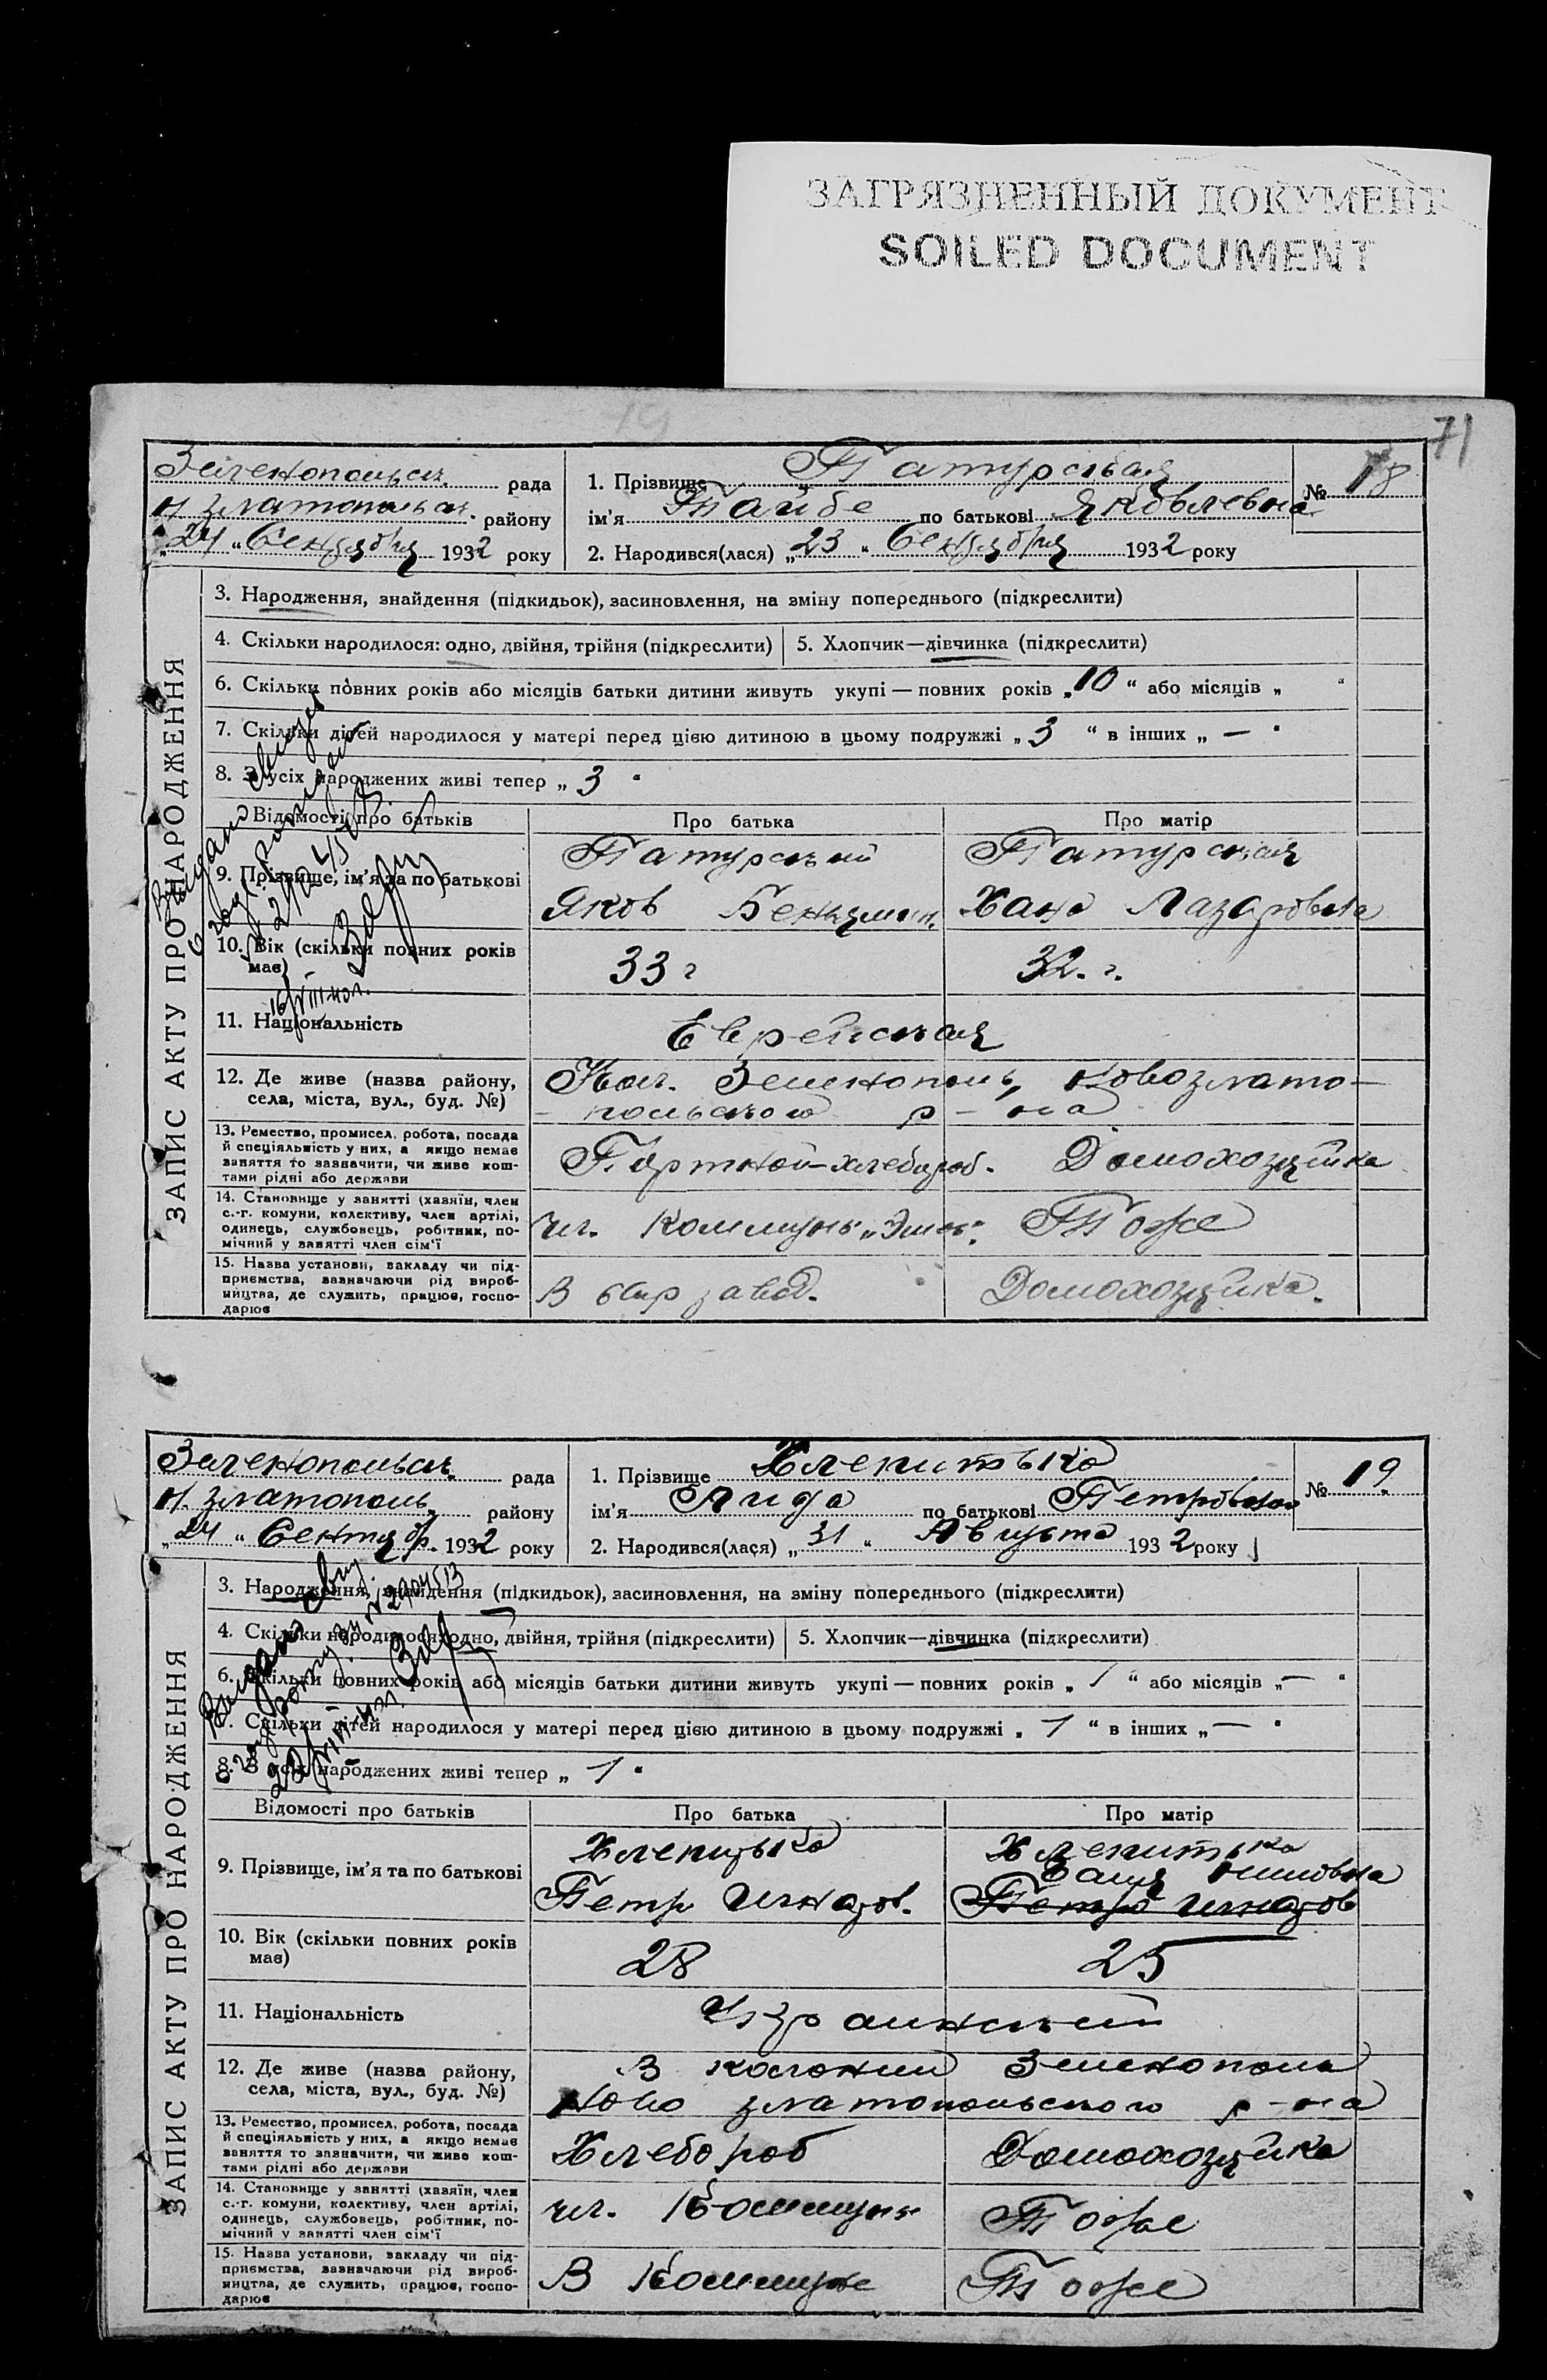 ЗАГРЯЗНЕННЫЙ ДОКУМЕНТ
SOILED DOCUMENT
71
Зеленопольск. рада
Н златопольск. району
„24 “ Сентября 1932 року
1. Прізвище Татурская
ім'я Тайбе по батькові Яковлевна
2. Народився(лася) „23 “ Сентября 1932 року
№ 18
ЗАПИС АКТУ ПРО НАРОДЖЕННЯ
3. Народження, знайдення (підкидьок), засиновлення, на зміну попереднього (підкреслити)
4. Скільки народилося: одно, двійня, трійня (підкреслити) 5. Хлопчик—дівчинка (підкреслити)
6. Скільки повних років або місяців батьки дитини живуть укупі — повних років „10 “ або місяців „ “
7. Скільки дітей народилося у матері перед цією дитиною в цьому подружжі „ 3 “ в інших „ — “
8. З усіх народжених живі тепер „ 3 “
Відомості про батьків Про батька Про матір
9. Прізвище, ім'я та по батькові
Татурский Татурская
Яков Беньямин. Хана Лазаровна
10. Вік (скільки повних років має) 33 г 32. г.
11. Національність Еврейская
12. Де живе (назва району,
села, міста, вул., буд. №)
Кол. Зеленополь, Новозлато-
польского р-на
13. Ремество, промисел, робота, посада
й спеціяльність у них, а якщо немає
заняття то зазначити, чи живе кош-
тами рідні або держави
Портной-хлебороб. Домохозяйка
14. Становище у занятті (хазяїн, член
с.-г. комуни, колективу, член артілі,
одинець, службовець, робітник, по-
мічний у занятті член сім'ї
чл. Коммуны Тоже
15. Назва установи, закладу чи під-
приємства, зазначаючи рід вироб-
ництва, де служить, працює, госпо-
дарює
В завод. Домохозяйка.
Видано
16/VIII-40г.
Зеленопольск. рада
Н. златополь. району
„24 “ Сентябр. 1932 року
1. Прізвище Хлепитько
ім'я Лида по батькові Петровна
2. Народився(лася) „ 31 “ Августа 1932 року
№ 19.
ЗАПИС АКТУ ПРО НАРОДЖЕННЯ
3. Народження, знайдення (підкидьок), засиновлення, на зміну попереднього (підкреслити)
4. Скільки народилося: одно, двійня, трійня (підкреслити) 5. Хлопчик—дівчинка (підкреслити)
6. Скільки повних років або місяців батьки дитини живуть укупі — повних років „ 1 “ або місяців „— “
7. Скільки дітей народилося у матері перед цією дитиною в цьому подружжі „ 1 “ в інших „ — “
8. З усіх народжених живі тепер „ 1 “
Видано
Відомості про батьків Про батька Про матір
9. Прізвище, ім'я та по батькові
Хлепитько Хлепитько
Петр Игнатов. Петро Игнатов
10. Вік (скільки повних років має) 28 25
11. Національність Украинский
12. Де живе (назва району,
села, міста, вул., буд. №)
В колонии Зеленополь
Ново златопольского р-на
13. Ремество, промисел, робота, посада
й спеціяльність у них, а якщо немає
заняття то зазначити, чи живе кош-
тами рідні або держави
Хлебороб Домохозяйка
14. Становище у занятті (хазяїн, член
с.-г. комуни, колективу, член артілі,
одинець, службовець, робітник, по-
мічний у занятті член сім'ї
чл. Коммуны Тоже
15. Назва установи, закладу чи під-
приємства, зазначаючи рід вироб-
ництва, де служить, працює, госпо-
дарює
В Коммуне Тоже